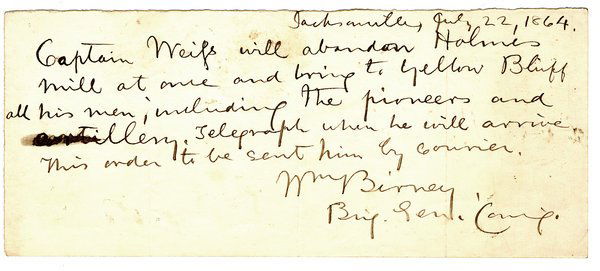 Jacksonville, July 22, 1864.
Captain Weifs will abandon Holmes
mill at once and bring to Yellow Bluff
all his men, including the pioneers and
artillery. Telegraph when he will arrive.
This order to be sent him by courier.
Wm Birney
Brig. Gen. Comg.